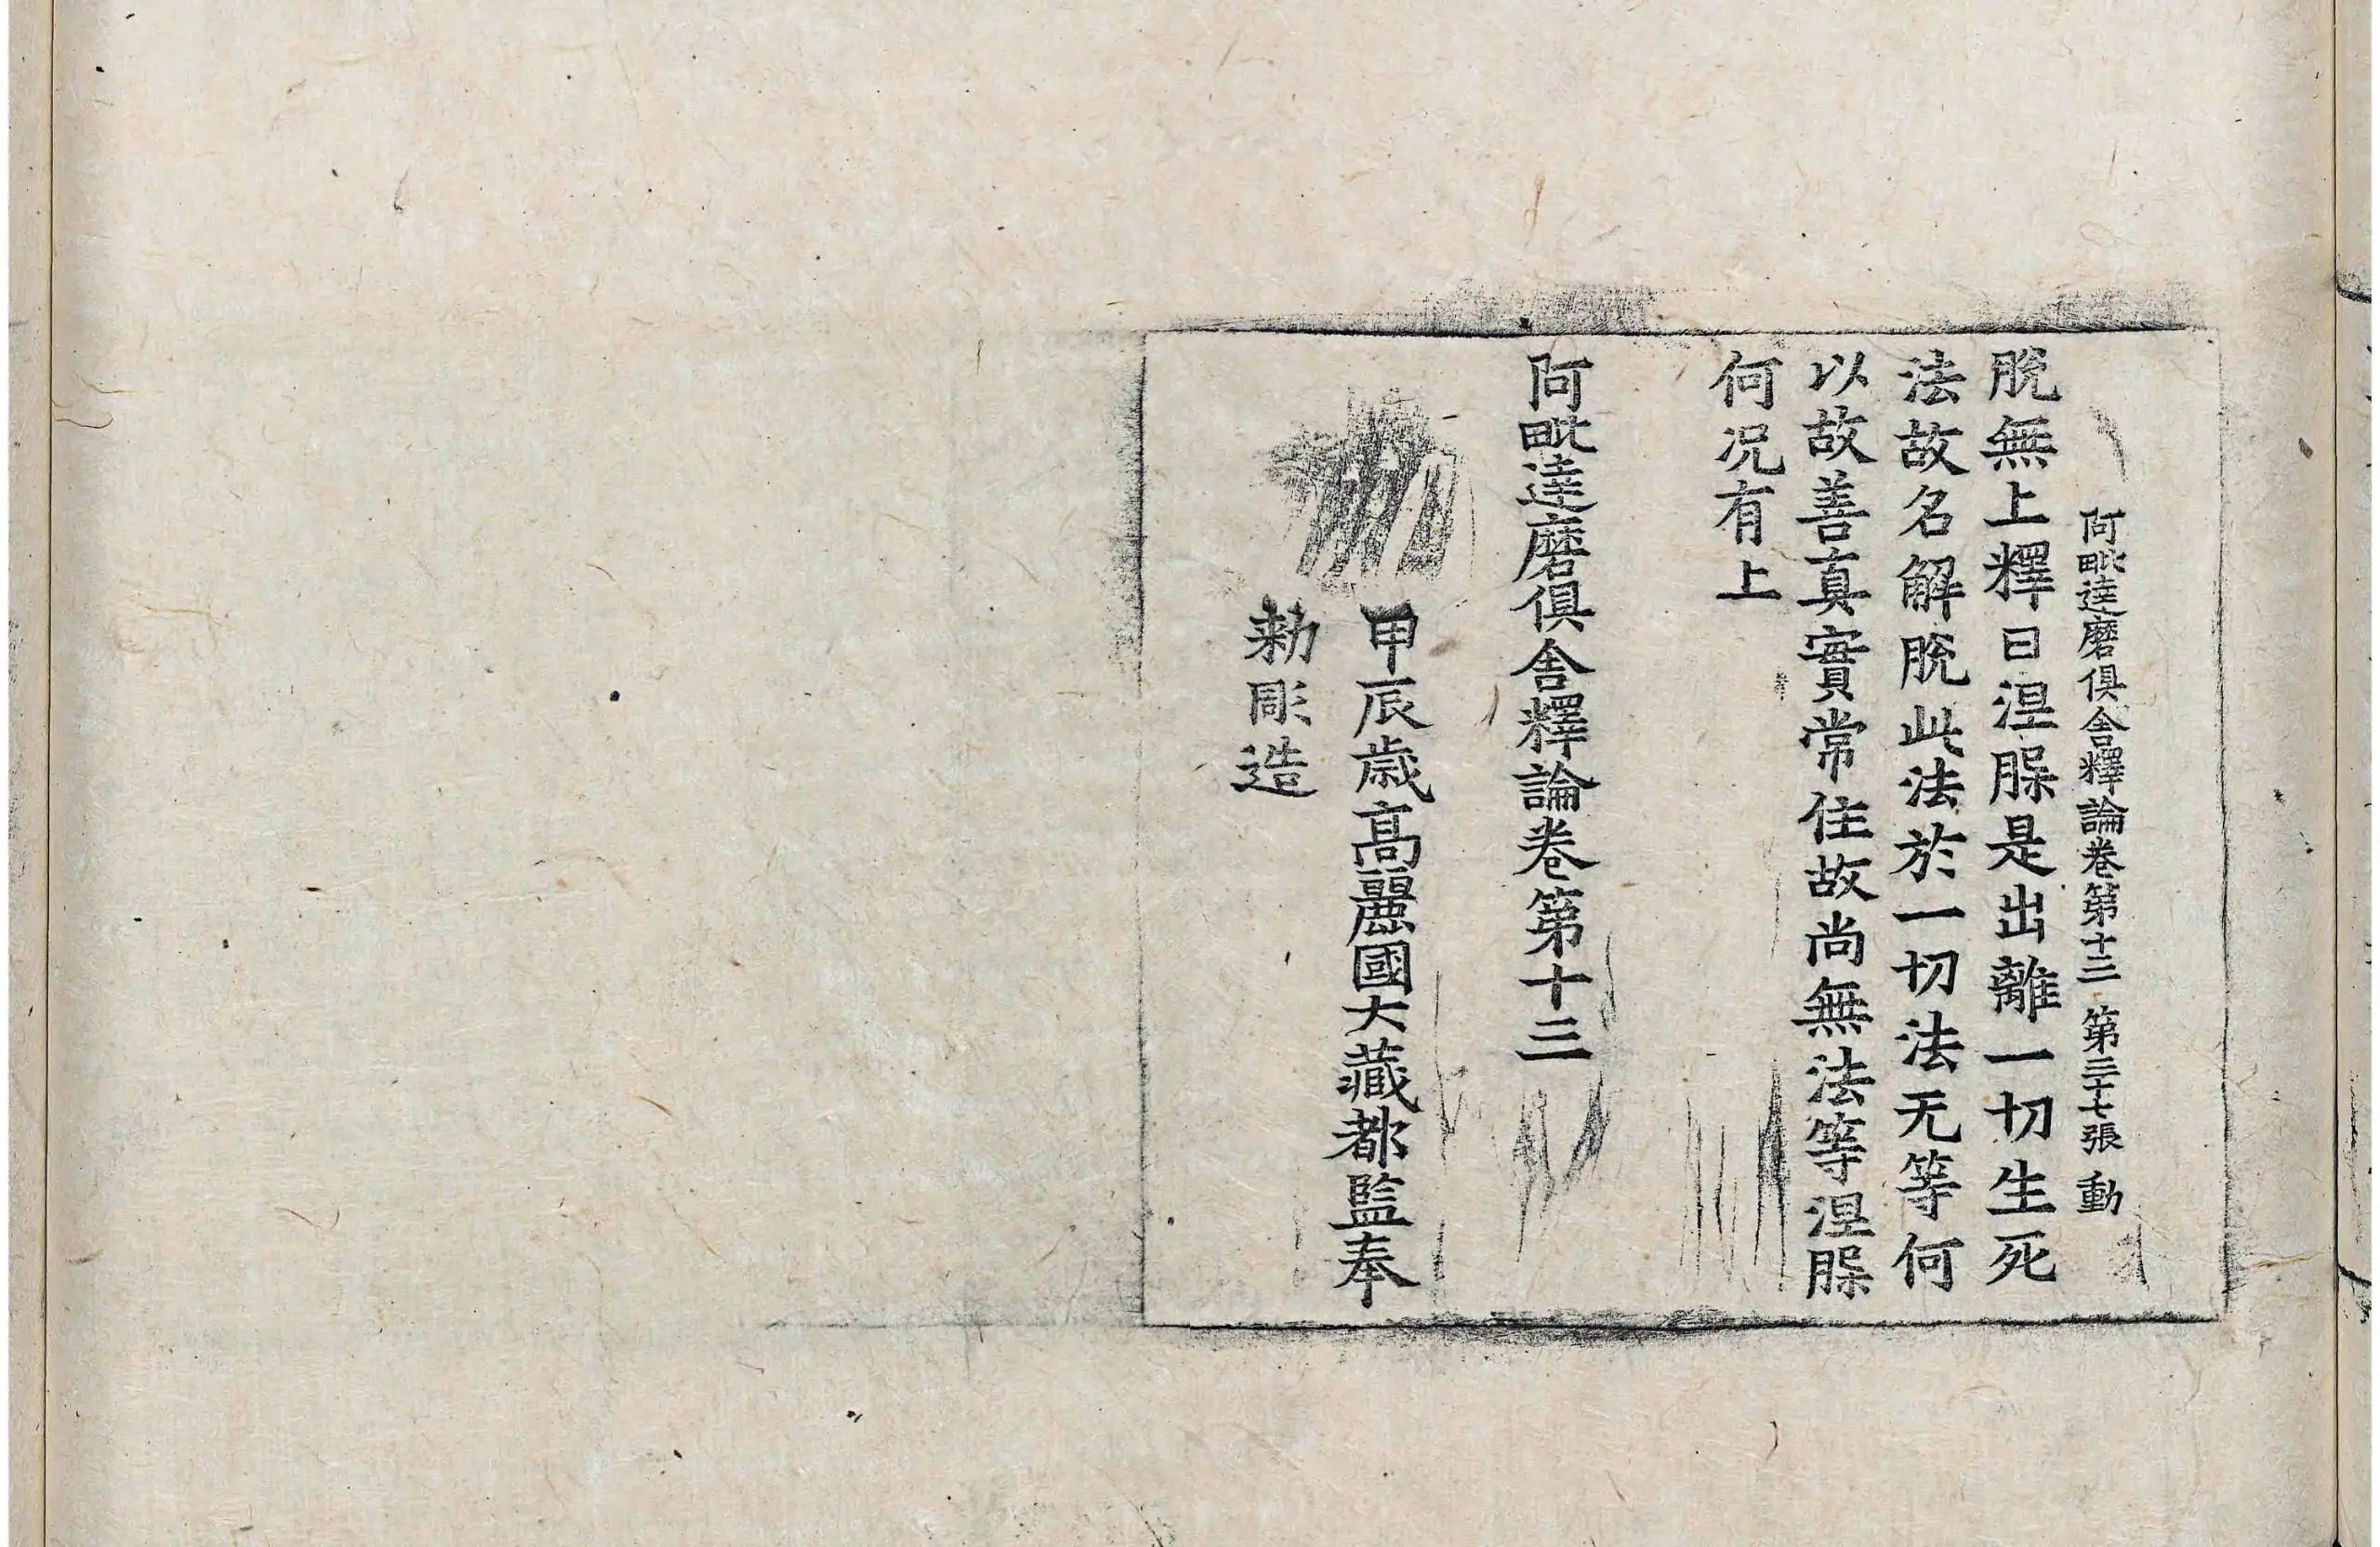 阿毗達磨俱舍釋論卷第十三 第三十七張 動
脫無上釋曰涅脲是出離一切生死
法故名解脫此法於一切法无等何
以故善真實常住故尚無法等涅脲
何况有上
阿毗達磨俱舍釋論卷第十三
甲辰歲高麗國大藏都監奉
勅彫造